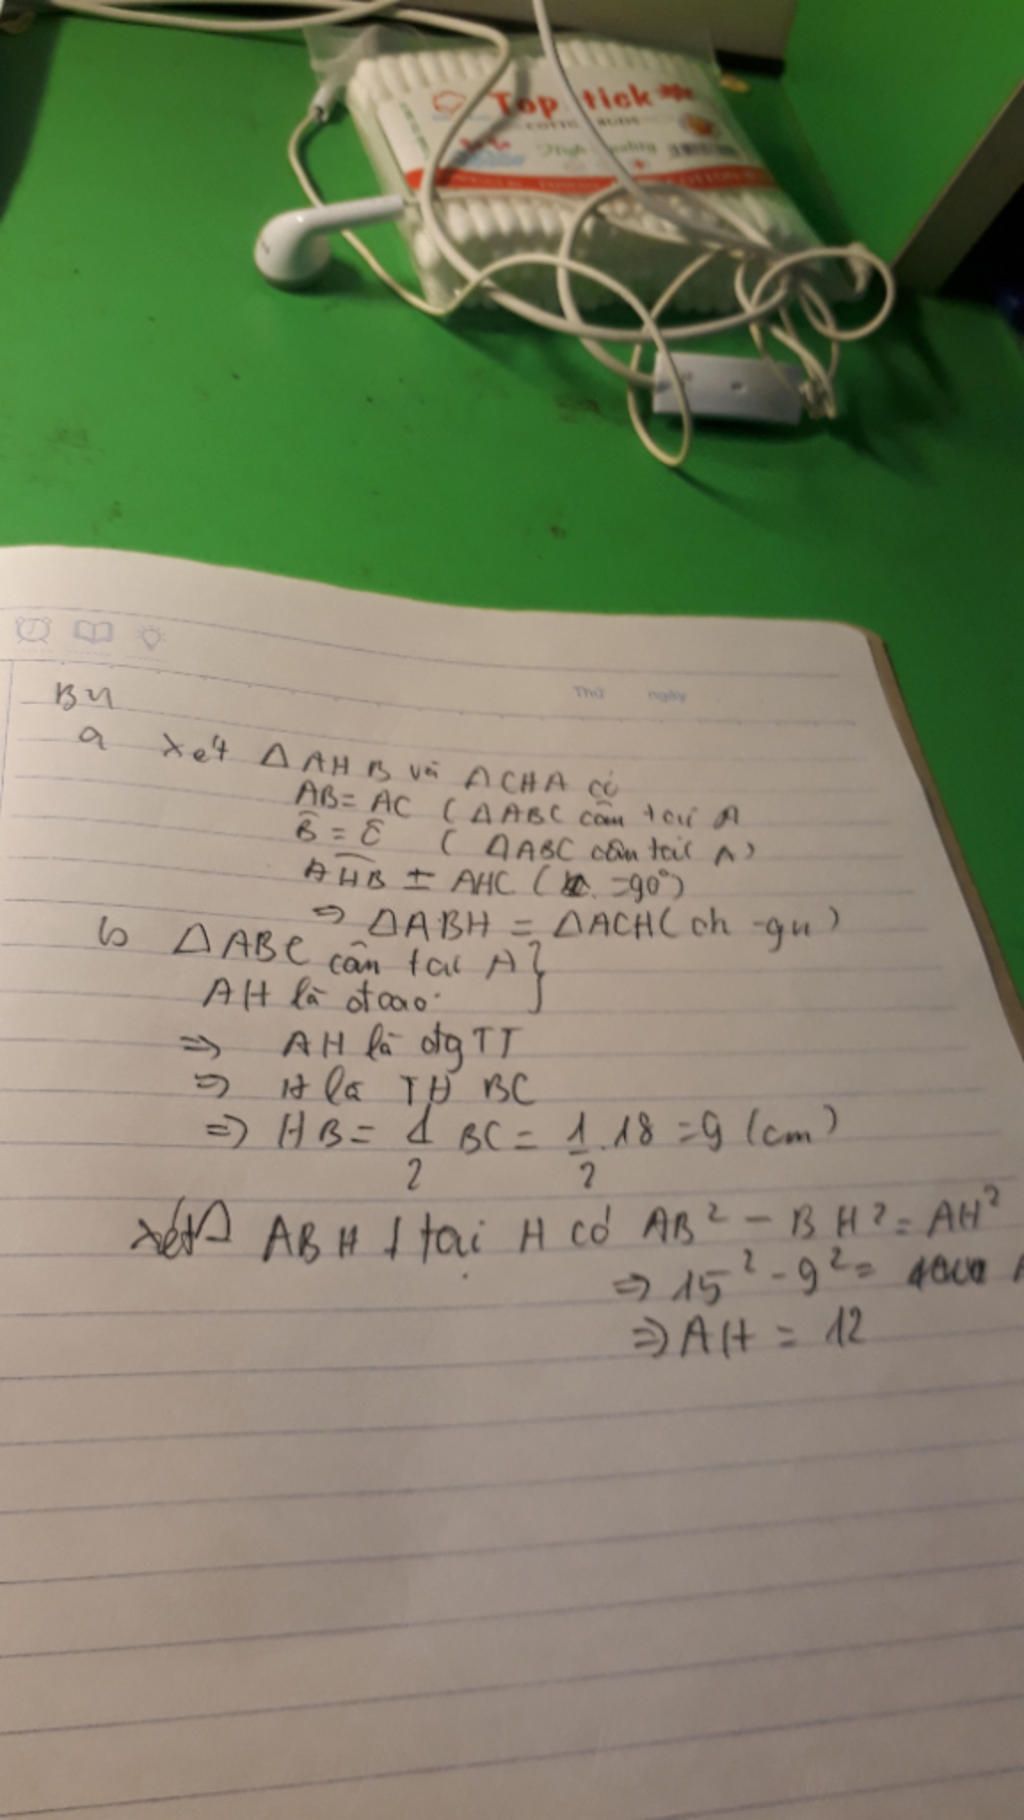 Top stick
COTTON BUDS
High quality
Thứ ngày
B4
a xét Δ AHB và ΔCHA có
AB = AC (ΔABC cân tại A
B̂ = Ĉ (ΔABC cân tại A)
AHB = AHC ( =90°)
⇒ ΔABH = ΔACH (ch -gn)
b ΔABC cân tại A }
AH là đcao
⇒ AH là đg TT
⇒ H là TĐ BC
⇒ HB = 1/2 BC = 1/2 .18 = 9 (cm)
xét Δ ABH ⊥ tại H có AB² - BH² = AH²
⇒ 15² - 9² =
⇒ AH = 12